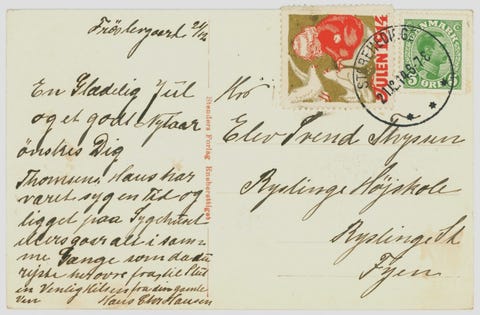 Frøslevgaard 21/12
En Glædelig Jul
og et godt Nytaar
ønskes Dig
Thomsens Hans har
været syg en Tid og
ligget paa Sygehuset
ellers gaar alt i sam-
me Gange som da du
rejste herovre fra, dit Slut
en Venlig Hilsen fra din gamle
Ven Hans Chr Hansen
Stenders Forlag Eneberettiget
JULEN 1914
STOREHEDINGE
21.12.14.6-7 E
DANMARK
5 ØRE 5
Hr
Elev Svend Thysen
Ryslinge Højskole
Ryslinge St
Fyen